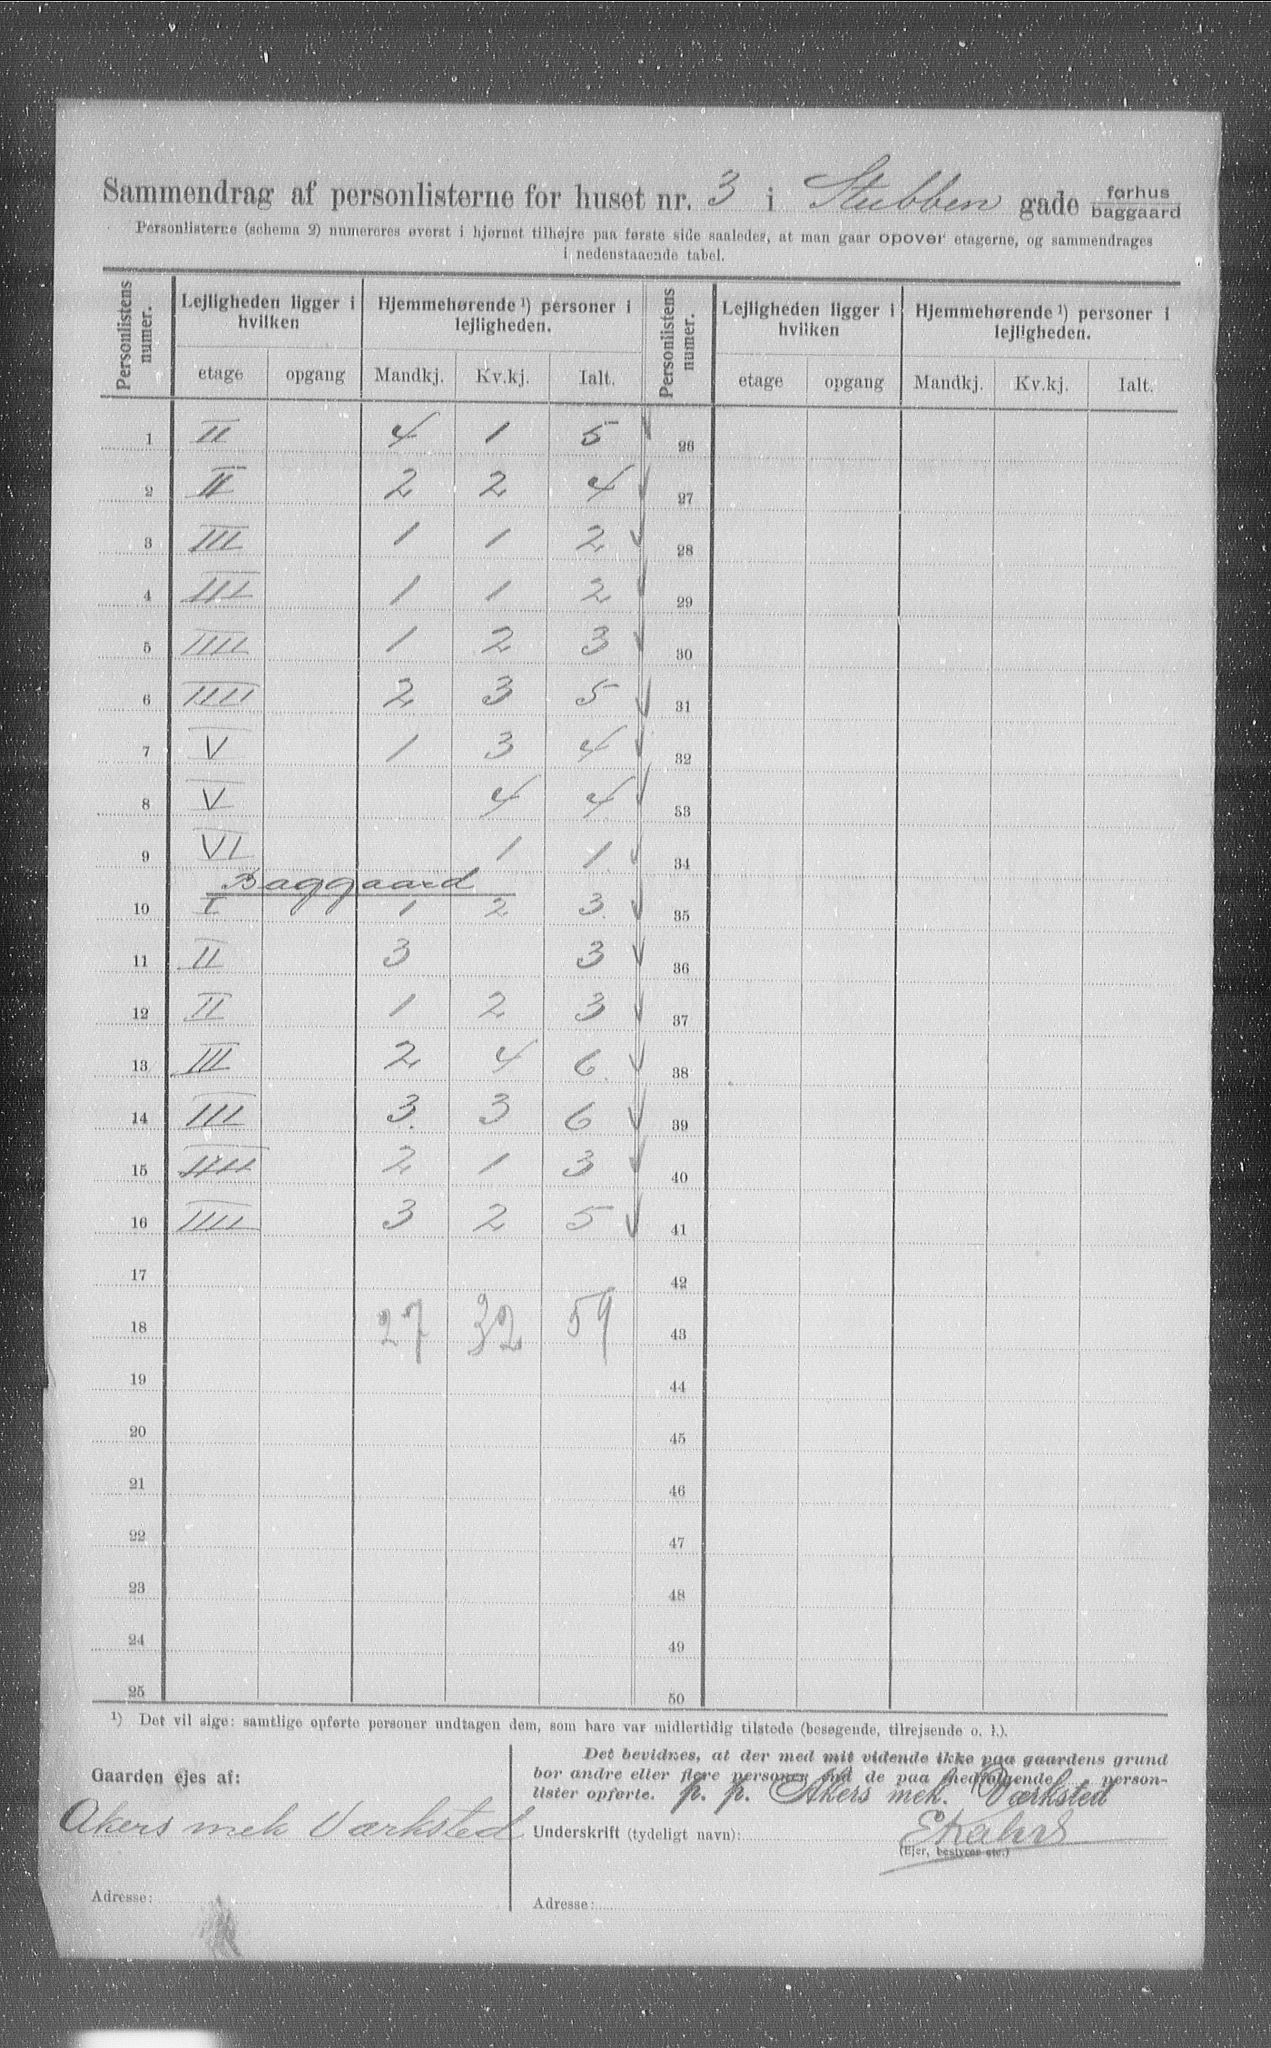 Sammendrag af personlisterne for huset nr. 3 i Stubben gade forhus
baggaard
Personlisterne (schema 2) numereres øverst i hjørnet tilhøjre paa første side saaledes, at man gaar opover etagerne, og sammendrages
i nedenstaaende tabel.
Personlistens numer. Lejligheden ligger i hvilken Hjemmehørende ¹) personer i lejligheden. Personlistens numer. Lejligheden ligger i hvilken Hjemmehørende ¹) personer i lejligheden.
etage opgang Mandkj. Kv.kj. Ialt. etage opgang Mandkj. Kv.kj. Ialt.
1 II 4 1 5 26
2 II 2 2 4 27
3 III 1 1 2 28
4 III 1 1 2 29
5 IIII 1 2 3 30
6 IIII 2 3 5 31
7 V 1 3 4 32
8 V 4 4 33
9 VI 1 1 34
Baggaard
10 I 1 2 3 35
11 II 3 3 36
12 II 1 2 3 37
13 III 2 4 6 38
14 III 3 3 6 39
15 IIII 2 1 3 40
16 IIII 3 2 5 41
17 42
18 27 32 59 43
19 44
20 45
21 46
22 47
23 48
24 49
25 50
¹) Det vil sige: samtlige opførte personer undtagen dem, som bare var midlertidig tilstede (besøgende, tilrejsende o. l.).
Gaarden ejes af:
Akers mek Værksted
Adresse:
Det bevidnes, at der med mit vidende ikke paa gaardens grund
bor andre eller flere personer end de paa medfølgende person-
lister opførte. p. p. Akers mek. Værksted
Underskrift (tydeligt navn):
(Ejer, bestyrer etc.)
Adresse: